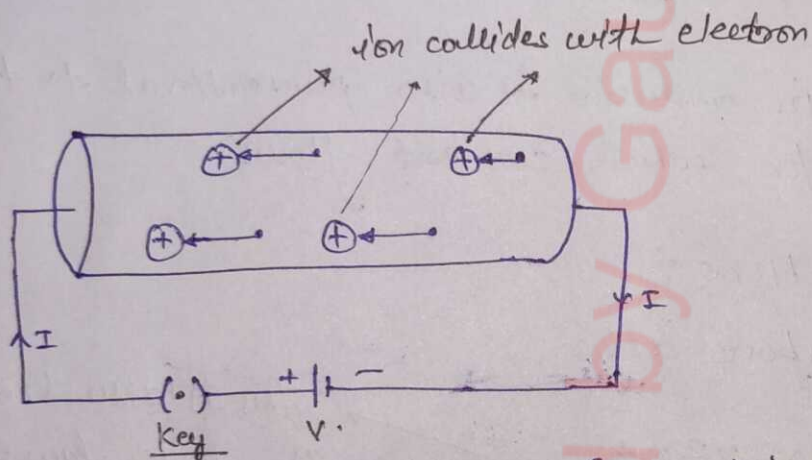 ion collides with electron
+
+
+
+
I
I
+
−
(•)
Key
V.
by Gau